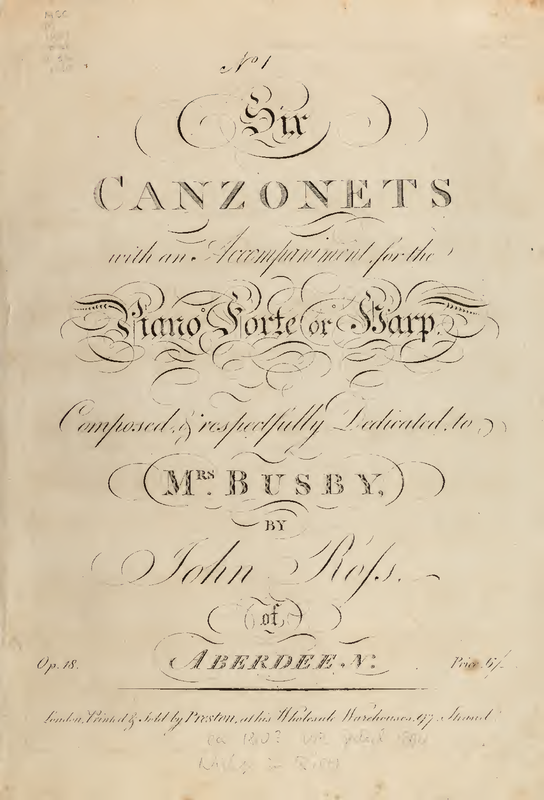 No 1
Six
CANZONETS
with an Accompaniment for the
Piano Forte or Harp
Composed & respectfully Dedicated to
MRS. BUSBY,
BY
John Roſs.
of
ABERDEEN.
Op. 18. Price 6/.
London, Printed & Sold by Preston, at his Wholesale Warehouses, 97, Strand